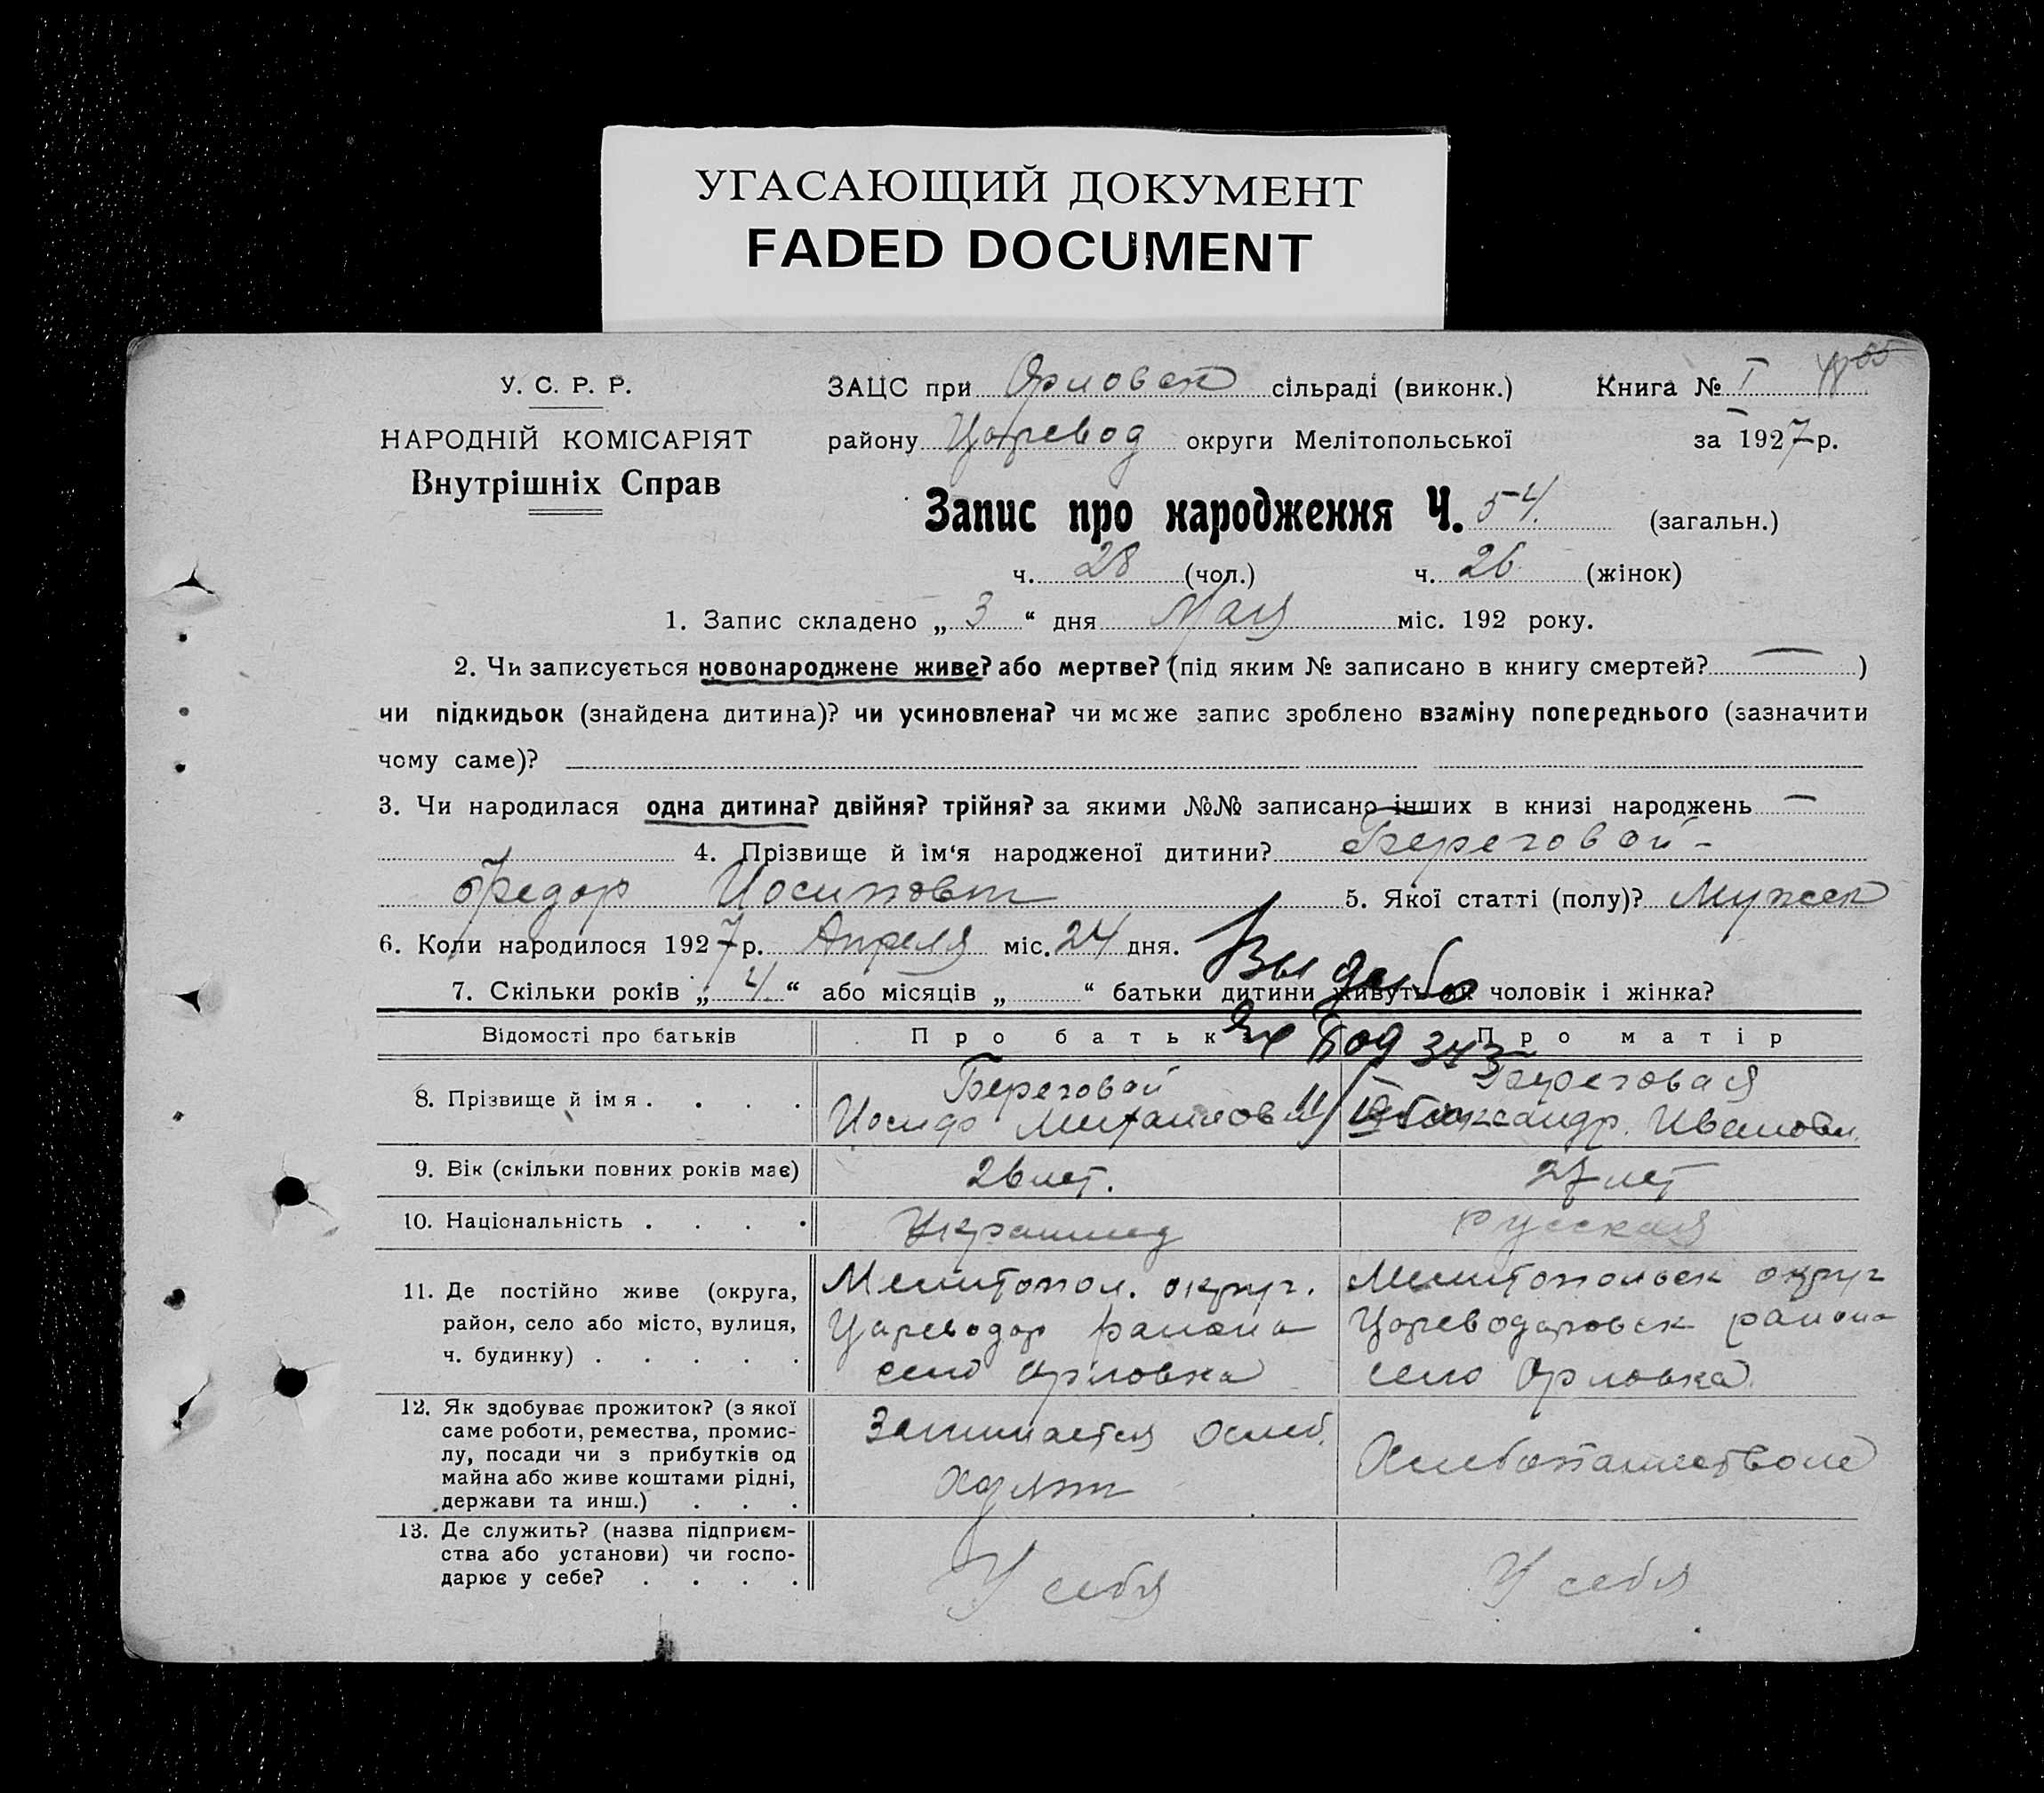 УГАСАЮЩИЙ ДОКУМЕНТ
FADED DOCUMENT
У. С. Р. Р.
НАРОДНІЙ КОМІСАРІЯТ
Внутрішніх Справ
ЗАЦС при Орловск сільраді (виконк.) Книга № I
району Царевод округи Мелітопольської за 1927 р.
Запис про народження Ч. 54. (загальн.)
ч. 28 (чол.) ч. 26 (жінок)
1. Запис складено „ 3 “ дня Мая міс. 192 року.
2. Чи записується новонароджене живе? або мертве? (під яким № записано в книгу смертей? — )
чи підкидьок (знайдена дитина)? чи усиновлена? чи може запис зроблено взаміну попереднього (зазначити
чому саме)?
3. Чи народилася одна дитина? двійня? трійня? за якими №№ записано інших в книзі народжень —
4. Прізвище й ім‘я народженої дитини? Береговой -
Федор Иосипович 5. Якої статті (полу)? Мужск
6. Коли народилося 1927 р. Апреля міс. 24 дня.
7. Скільки років „ 4. “ або місяців „ “ батьки дитини живуть як чоловік і жінка?
Відомості про батьків Про батька Про матір
8. Прізвище й імя . . . . Береговой Береговая
Иосиф Михайлов Александр. Иванов
9. Вік (скільки повних років має) 26 лет. 27 лет
10. Національність . . . . Украинец русская
11. Де постійно живе (округа, Мелитопол. округ. Мелитопольск округ
район, село або місто, вулиця, Цареводар района Цареводаровск района
ч. будинку) . . . . . село Орловка село Орловка
12. Як здобуває прожиток? (з якої
саме роботи, ремества, промис- Занимается
лу, посади чи з прибутків од Хлебопашеством
майна або живе коштами рідні,
держави та инш.) . . .
13. Де служить? (назва підприєм-
ства або установи) чи госпо-
дарює у себе? . . . . У себя У себя